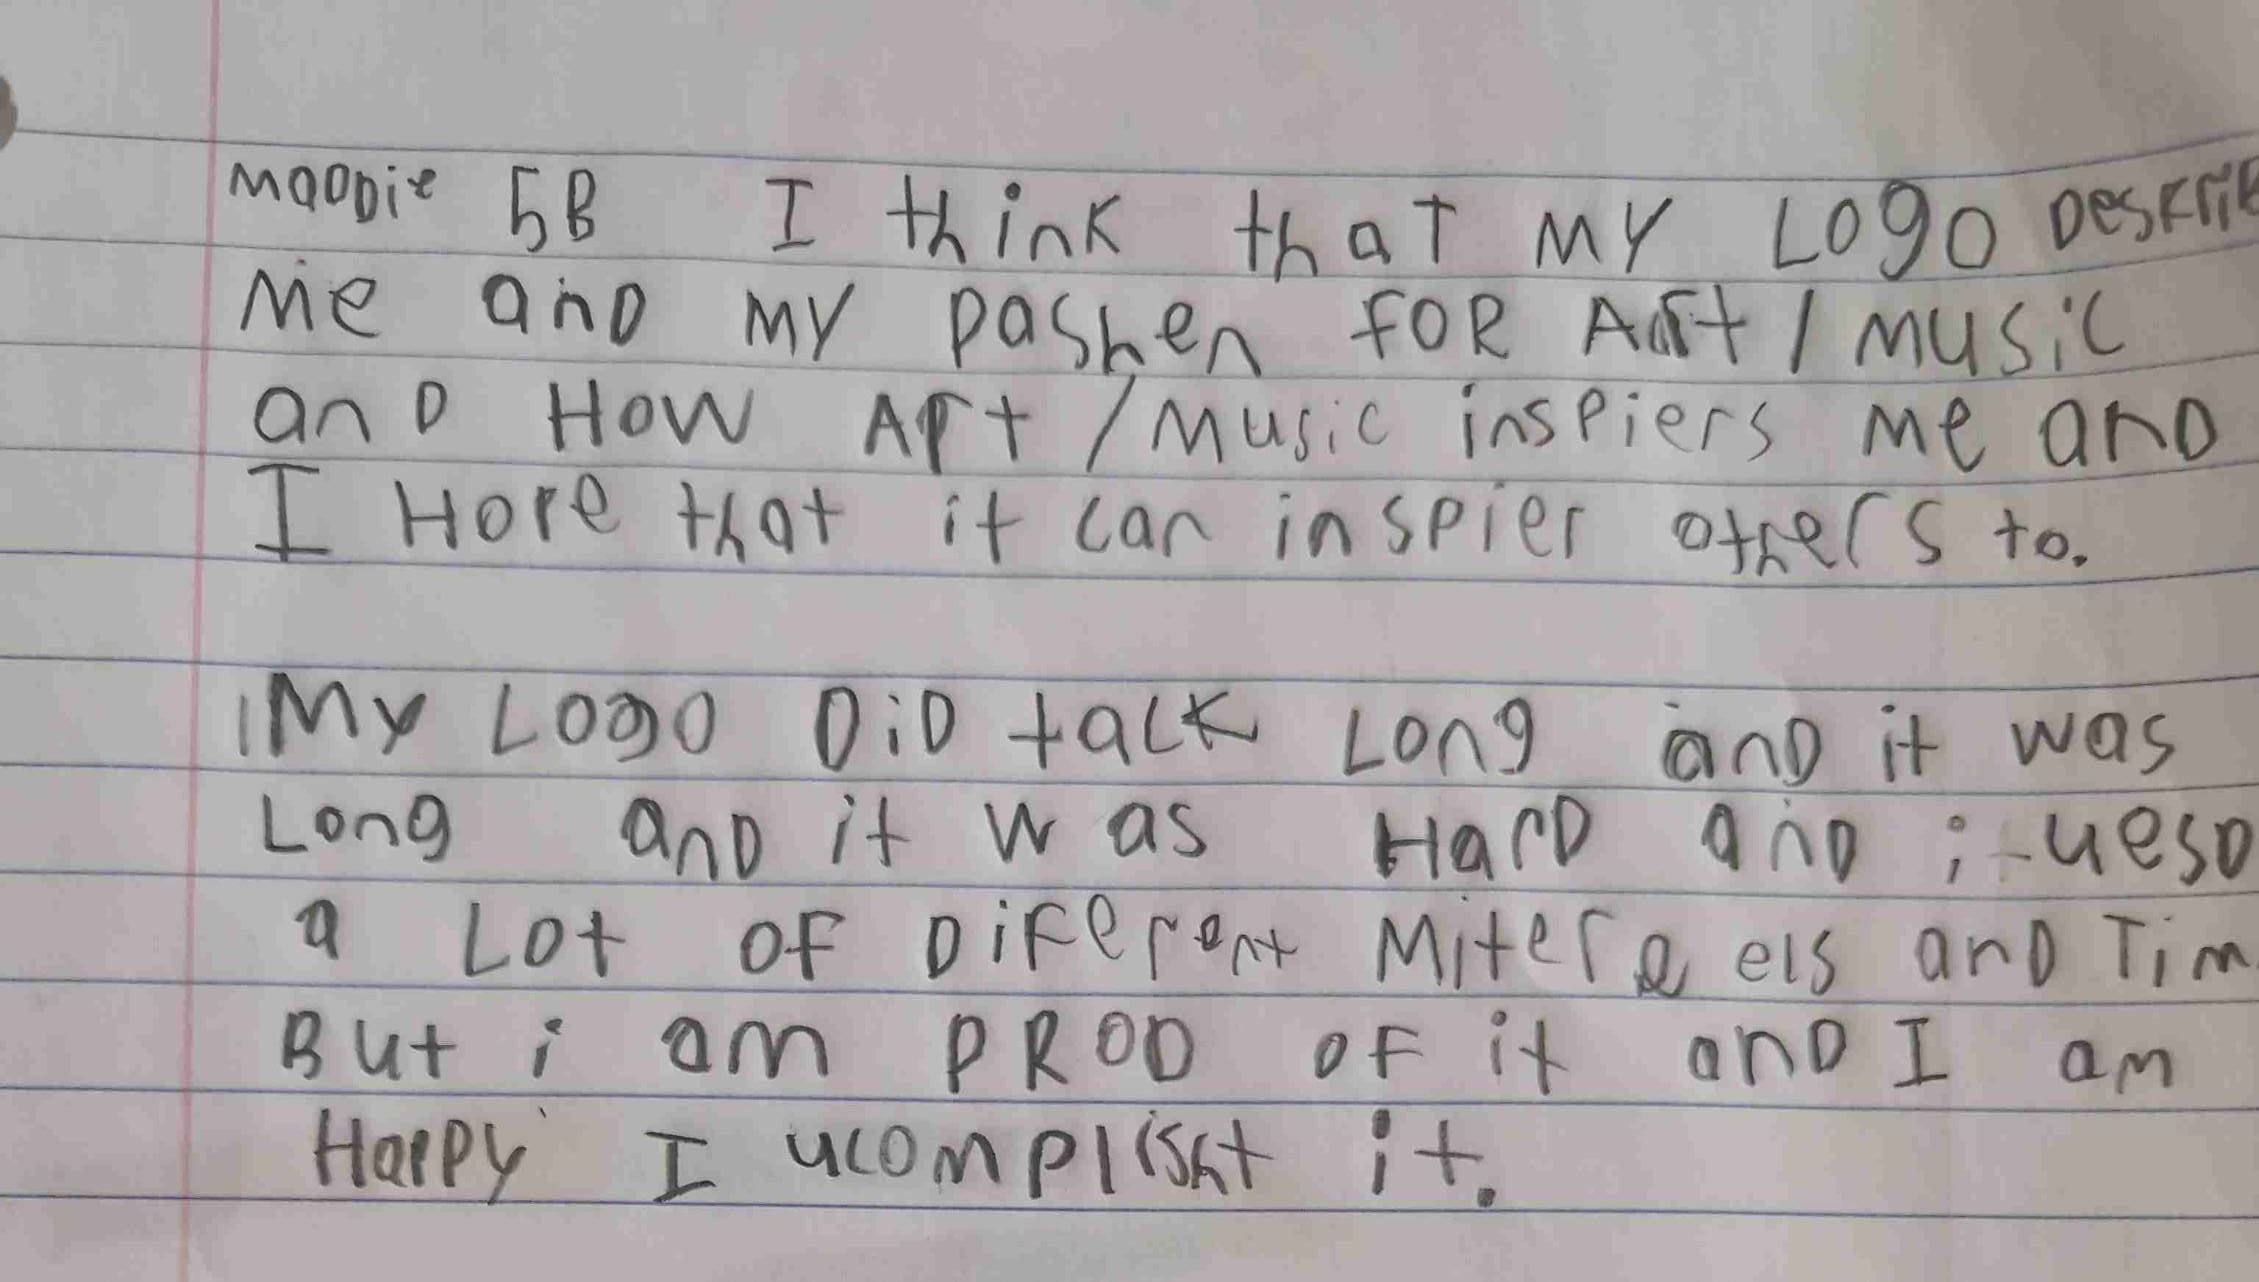 MaDDie 5B I think that MY LOgO DesKriB
Me anD MY pashen FOR Art / Music
anD How Art / Music insPiers Me anD
I HoPe that it can inspier others to.
My LOgO DiD talk Long anD it was
Long anD it was HarD anD i ueSD
a Lot OF DiFerent Mitereels anD Tim
But i am PROD OF it anD I am
HaPPy I ucomplisht it.